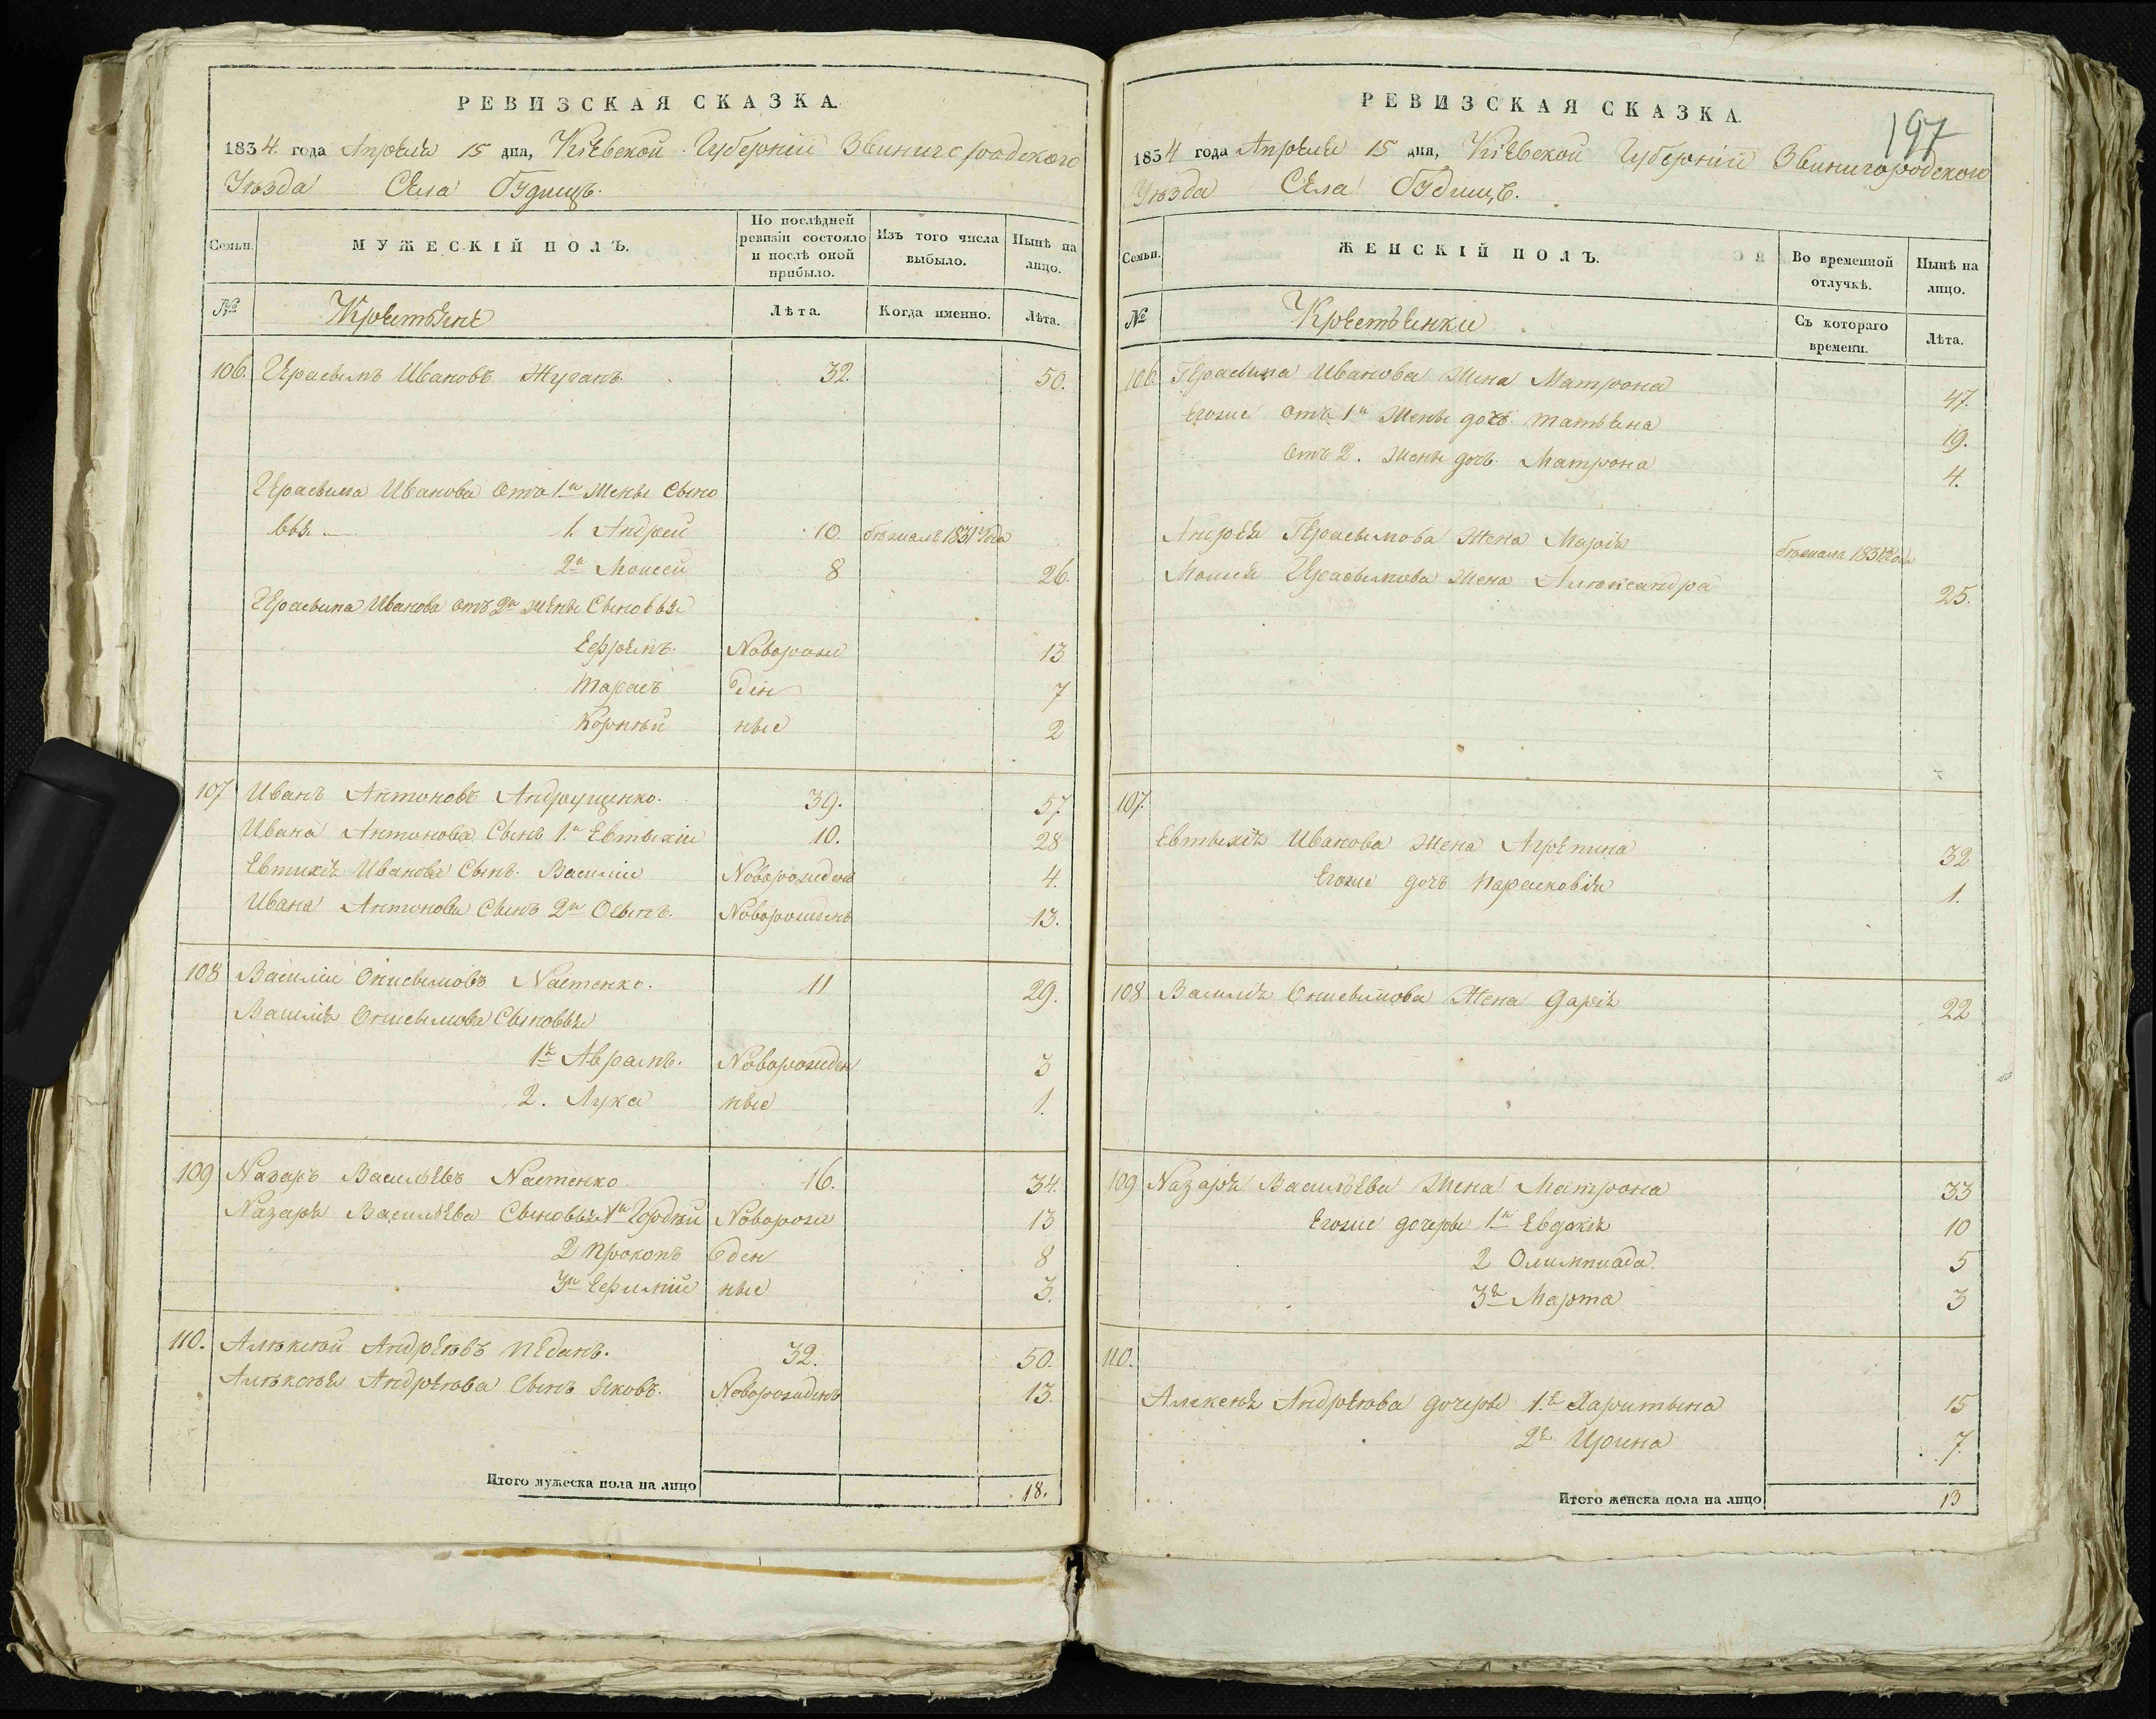 РЕВИЗСКАЯ СКАЗКА.
1834. года Апреля 15 дня, Кіевской Губерніи Звинигородского
Уѣзда Села Будищъ.
Семьи.
МУЖЕСКІЙ ПОЛЪ.
По послѣдней ревизіи состояло и послѣ оной прибыло.
Изъ того числа выбыло.
Нынѣ на лицо.
№
Крестьяне
Лѣта.
Когда именно.
Лѣта.
106. Герасымъ Ивановъ Жуганъ. 32. 50.
Герасыма Иванова Отъ 1й Жены Сыно
вья 1. Андрей 10. бѣжалъ 1831 года
2й Моисей 8 26.
Герасыма Иванова отъ 2й жены Сыновья
Ефремъ. Noворож 13
Тарасъ ден 7
Корнѣй ные 2
107 Иванъ Антоновъ Андрущенко. 39. 57
Ивана Антонова Сынъ 1й Евтыхіи 10. 28
Евтихія Иванова Сынъ Василіи Noворожденъ 4.
Ивана Антонова Сынъ 2й Осыпъ. Noворожденъ 13.
108 Василіи Онисымовъ Nастенко. 11 29.
Василія Онисымова Сыновья
1й Аврамъ. Noворожден 3
2. Лука ные 1.
109 Nазаръ Васильевъ Nастенко. 16. 34.
Nазаря Васильева Сыновья 1й Гордѣй Noворож 13
2 Прокопъ ден 8
3й Ефимій ные 3.
110. Алѣксѣй Андрѣевъ Педанъ. 32. 50.
Алѣксѣя Андрѣева Сынъ Яковъ. Noворожденъ 13.
Итого мужеска пола на лицо 18.
РЕВИЗСКАЯ СКАЗКА.
197
1834 года Апреля 15 дня, Кіевской Губерніи Звинигородского
Уѣзда Села Будищъ.
Семьи.
ЖЕНСКІЙ ПОЛЪ.
Во временной отлучкѣ.
Нынѣ на лицо.
№
Крестьянки
Съ котораго времени.
Лѣта.
106 Герасыма Иванова Жена Матрона 47.
Егоже отъ 1й Жены дочь Татьяна 19.
Отъ 2. жены дочь Матрона 4.
Андрея Герасымова Жена Марія бѣжала 1831 года
Моисея Герасымова Жена Алѣксандра 25.
107.
Евтыхія Иванова Жена Агрепина 32
Егоже дочь Парасковія 1.
108 Василія Онисымова Жена Дарія 22
109 Nазаря Васильева Жена Матрона 33
Егоже дочеры 1я Евдокія 10
2 Олимпиада. 5
3я Марта 3
110.
Алексѣя Андрѣева дочеры 1я Харитына 15
2я Ирина 7.
Итого женска пола на лицо 13